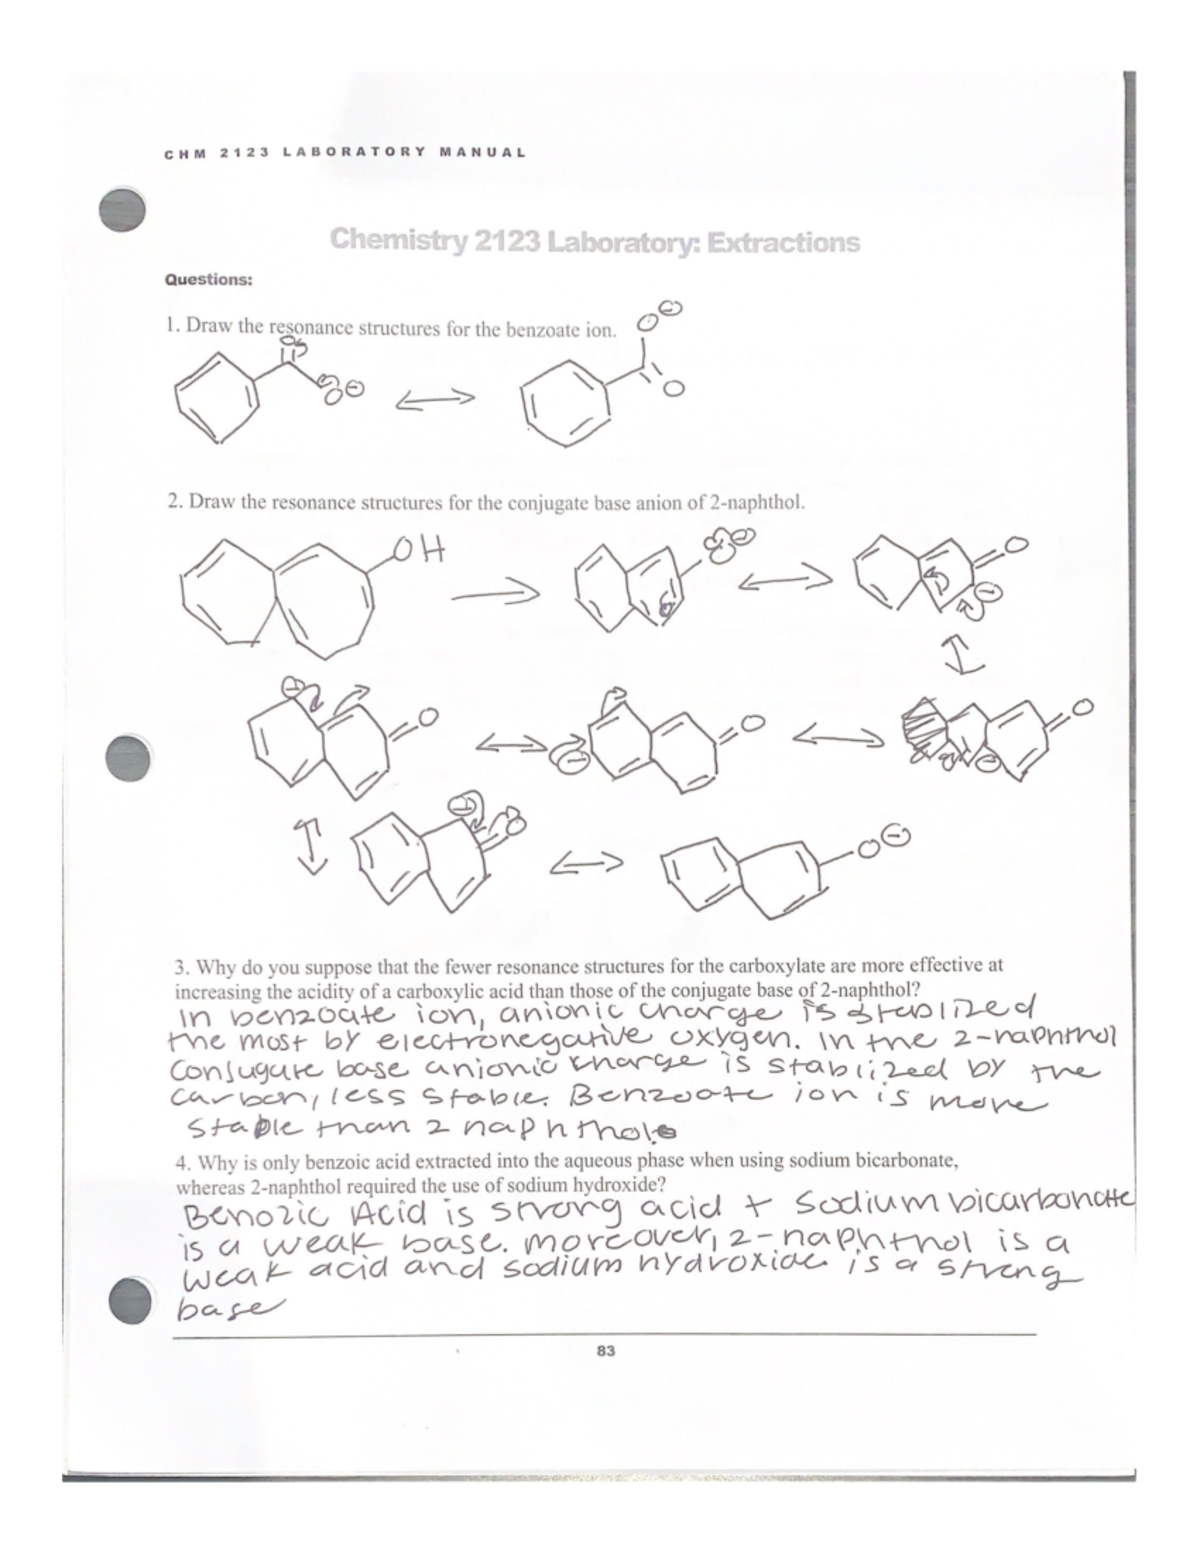 CHM 2123 LABORATORY MANUAL
Chemistry 2123 Laboratory: Extractions
Questions:
1. Draw the resonance structures for the benzoate ion.
O ⊖
O
O ⊖
O
2. Draw the resonance structures for the conjugate base anion of 2-naphthol.
OH
O ⊖
O
⊖
⊖
O
⊖
O
O
⊖
⊖
O
O ⊖
3. Why do you suppose that the fewer resonance structures for the carboxylate are more effective at
increasing the acidity of a carboxylic acid than those of the conjugate base of 2-naphthol?
In benzoate ion, anionic charge is stablized
the most by electronegative oxygen. In the 2-naphthol
conjugate base anionic charge is stabilized by the
carbon, less stable. Benzoate ion is more
stable than 2 naphthol.
4. Why is only benzoic acid extracted into the aqueous phase when using sodium bicarbonate,
whereas 2-naphthol required the use of sodium hydroxide?
Benozic Acid is strong acid + Sodium bicarbonate
is a weak base. moreover, 2-naphthol is a
weak acid and sodium hydroxide is a strong
base
83